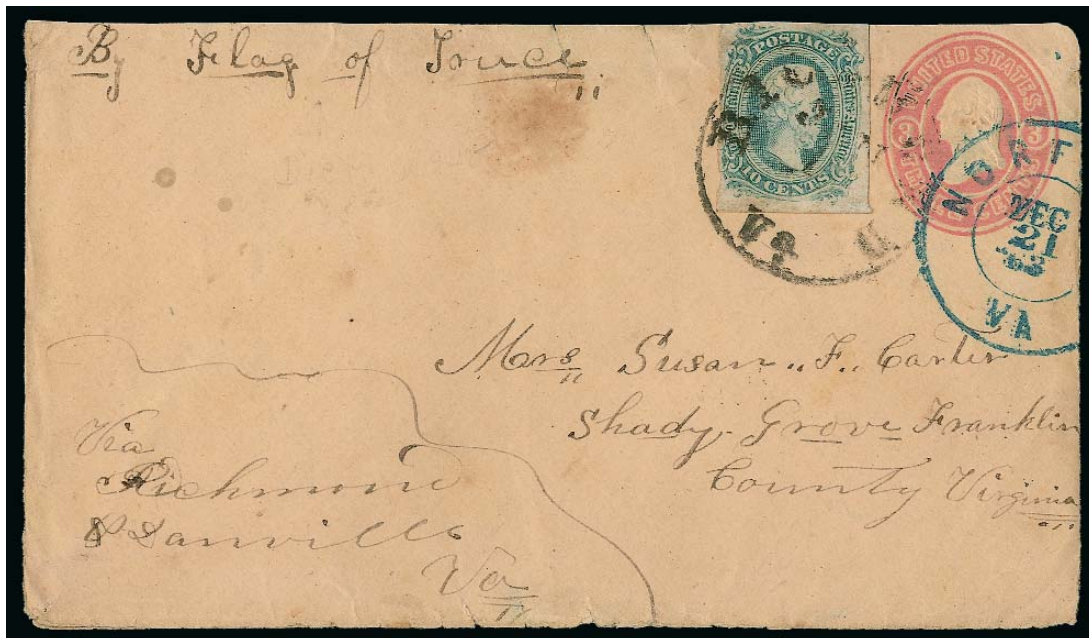 By Flag of Truce
POSTAGE
TEN CENTS
UNITED STATES
3 3
THREE CENTS
VA
NORF
DEC
21
63
VA
Mrs Susan F. Carter
Shady Grove Franklin
County Virginia
Via
Richmond
& Danville
Va